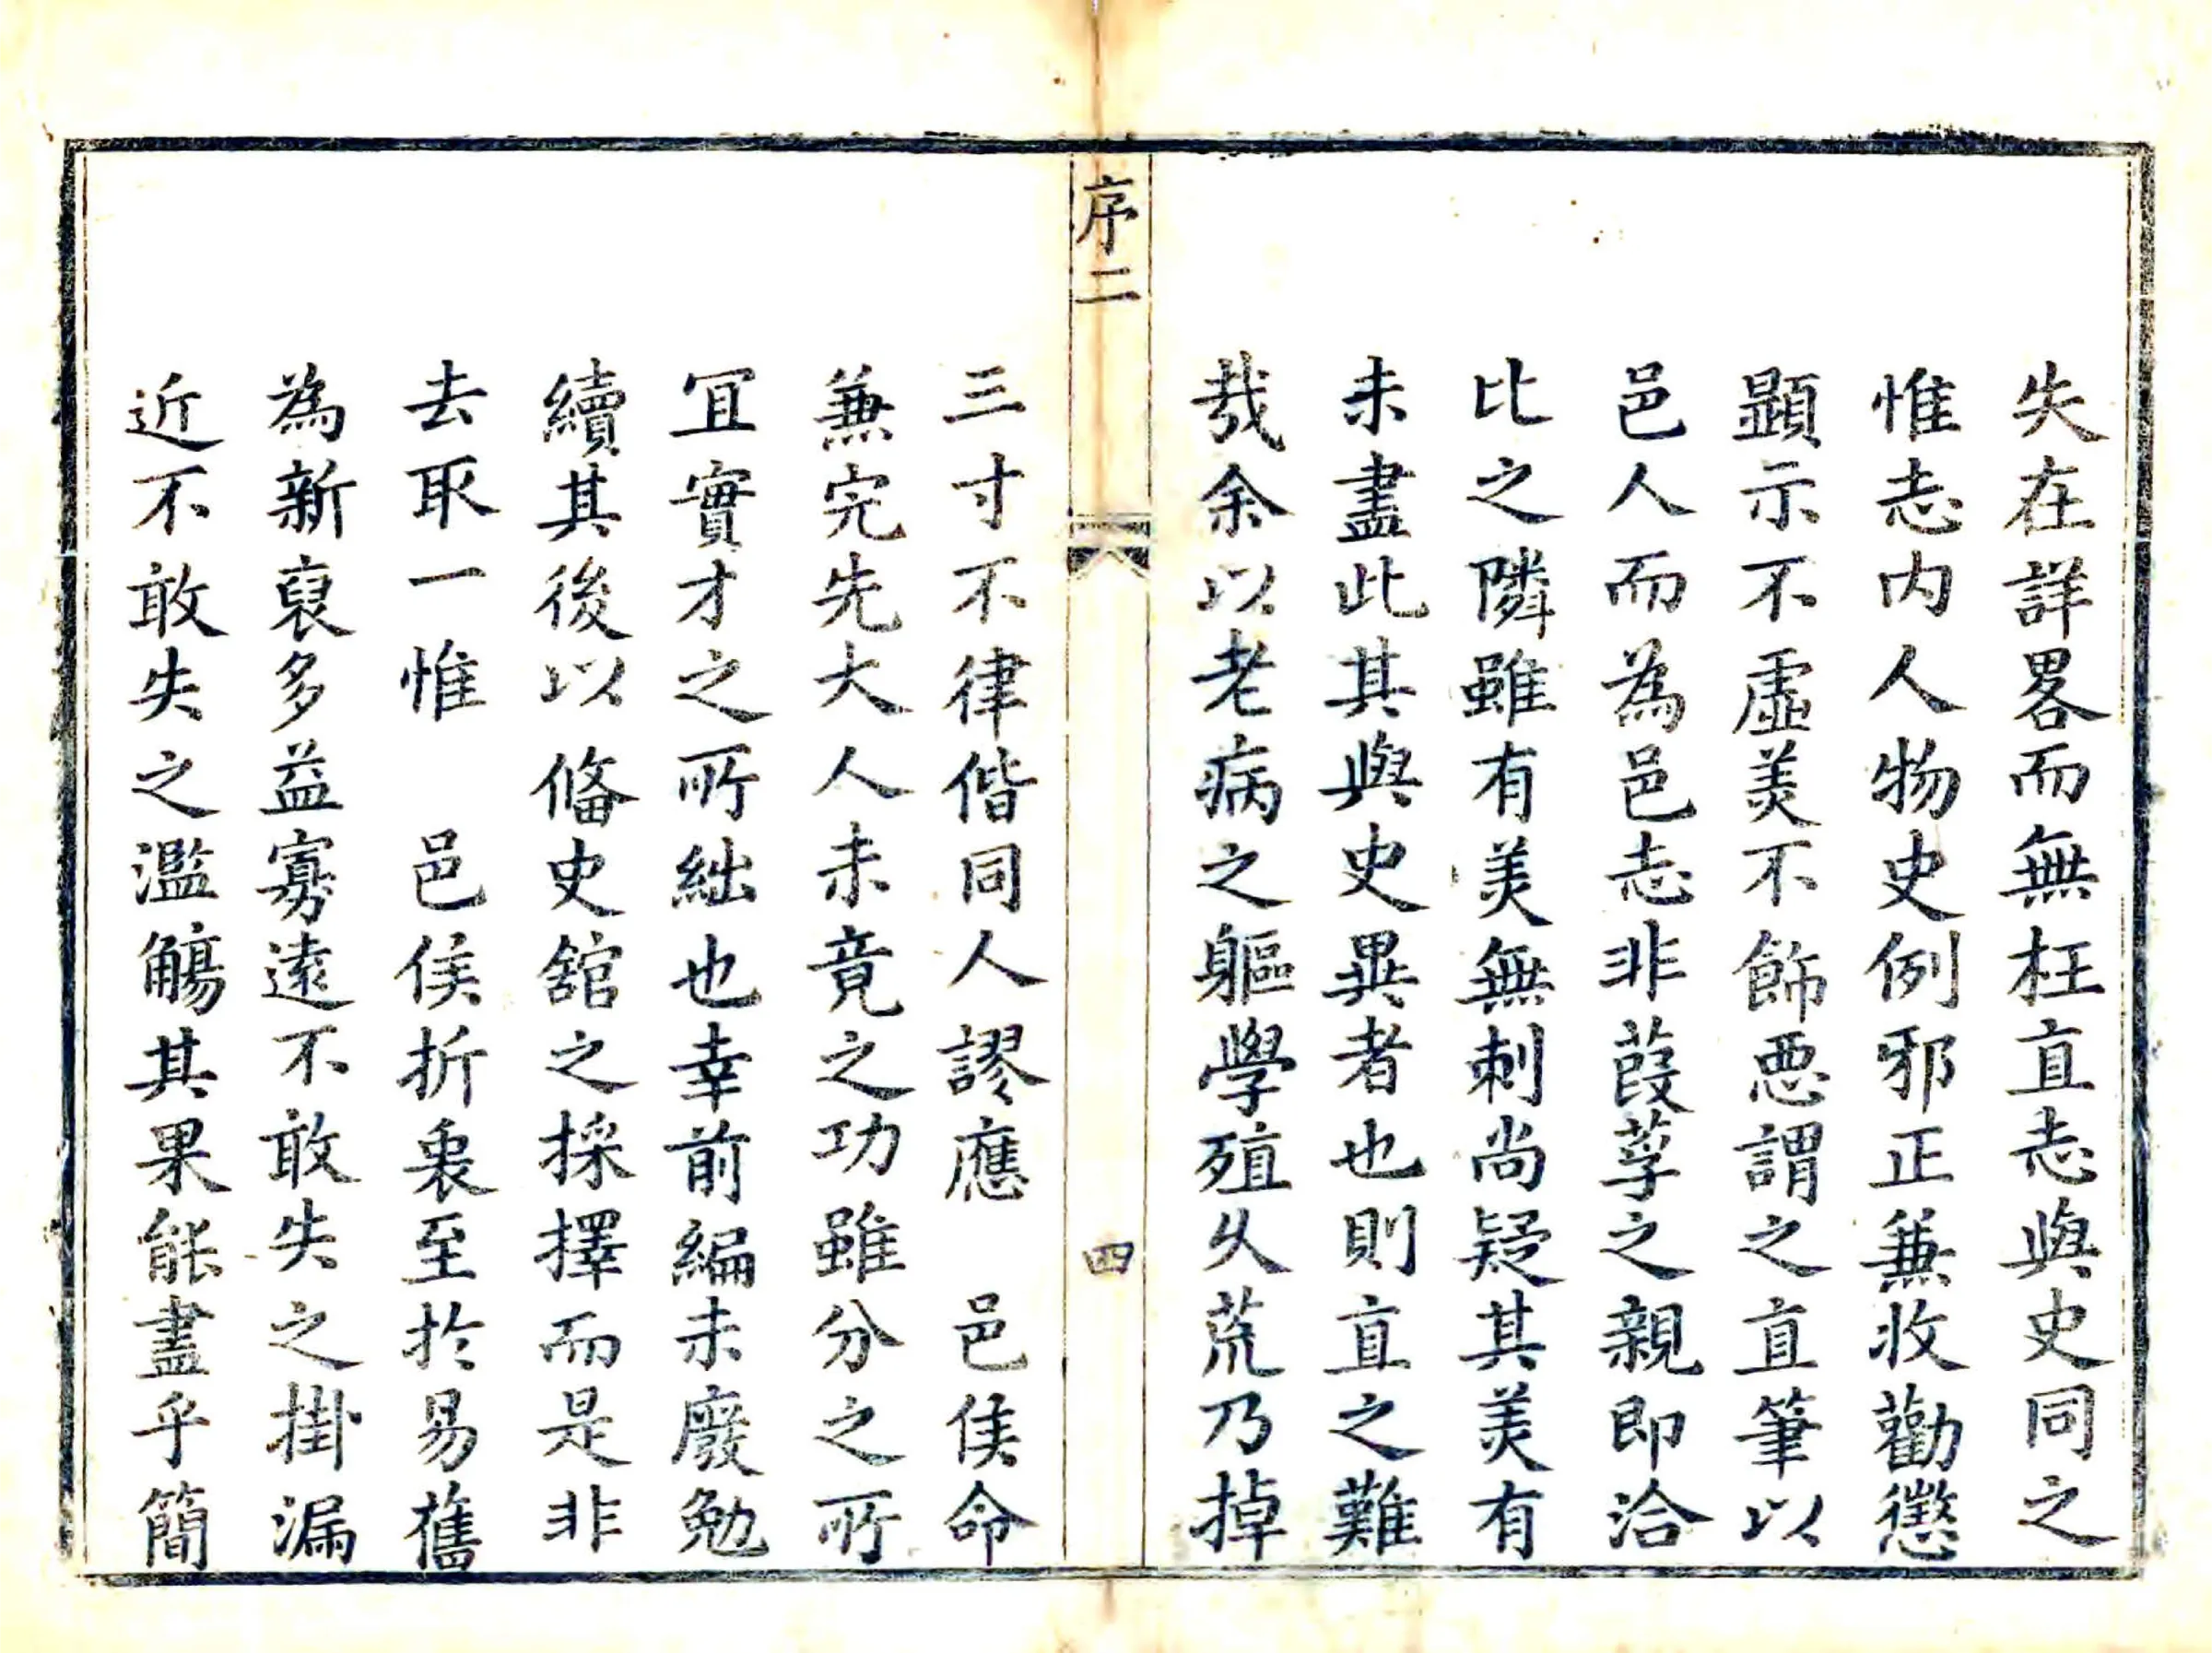 失在詳畧而無枉直志與史同之
惟志内人物史例邪正兼收勸懲
顯示不虛美不飾惡謂之直筆以
邑人而為邑志非葭莩之親即洽
比之隣雖有美無刺尚疑其美有
未盡此其與史異者也則直之難
哉余以老病之軀學殖久荒乃掉
序二
四
三寸不律偕同人謬應　邑侯命
兼完先大人未竟之功雖分之所
宜實才之所絀也幸前編未廢勉
續其後以俻史舘之採擇而是非
去取一惟　邑侯折衷至於易舊
為新裒多益寡遠不敢失之掛漏
近不敢失之濫觴其果能盡乎簡